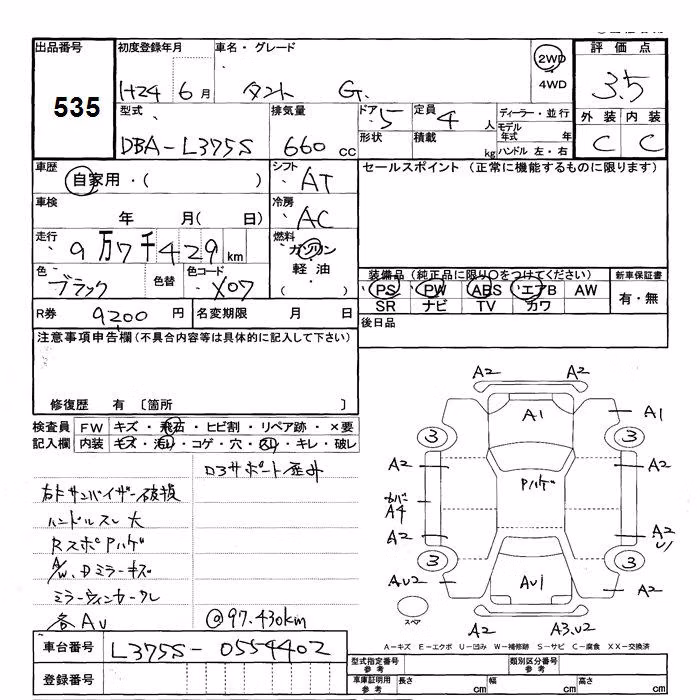 出品番号 初度登録年月 車名・グレード 2WD 評価点
535 H24 6月 タント G. 4WD 3.5
型式 排気量 ドア 5 定員 4人 ディーラー・並行 外装 内装
DBA-L375S 660cc 形状 積載 kg モデル年式 年 ハンドル 左・右 C C
車歴 自家用・( ) シフト AT セールスポイント (正常に機能するものに限ります)
車検 年 月( 日) 冷房 AC
走行 9万7千429km 燃料 ガソリン
色 ブラック 色替 色コード X07 軽油 ( ) 装備品(純正品に限り○をつけてください) 新車保証書
PS PW ABS エアB AW 有・無
R券 9200円 名変期限 月 日 SR ナビ TV カワ
注意事項申告欄(不具合内容等は具体的に記入して下さい) 後日品
修復歴 有 〔箇所 〕
検査員 FW キズ・飛石・ヒビ割・リペア跡・×要
記入欄 内装 キズ・汚れ・コゲ・穴・スレ・キレ・破レ
ロアサポート歪み
右Fサンバイザー破損
ハンドルスレ 大
RスポPハゲ
A/W,Dミラーキズ
ミラーウィンカークレ
各AU @97.430km
A2 A2
A1 A1
3 3
A2 A2
Pハゲ
カバー A4
A2 A2 U1
3 3
AU2 AU1 A2
スペア A2 A3.U2
A-キズ E-エクボ U-凹み W-補修跡 S-サビ C-腐食 XX-交換済
車台番号 L375S-0554402
登録番号
型式指定番号 参考 類別区分番号 参考
車庫証明用 参考 長さ cm 幅 cm 高さ cm